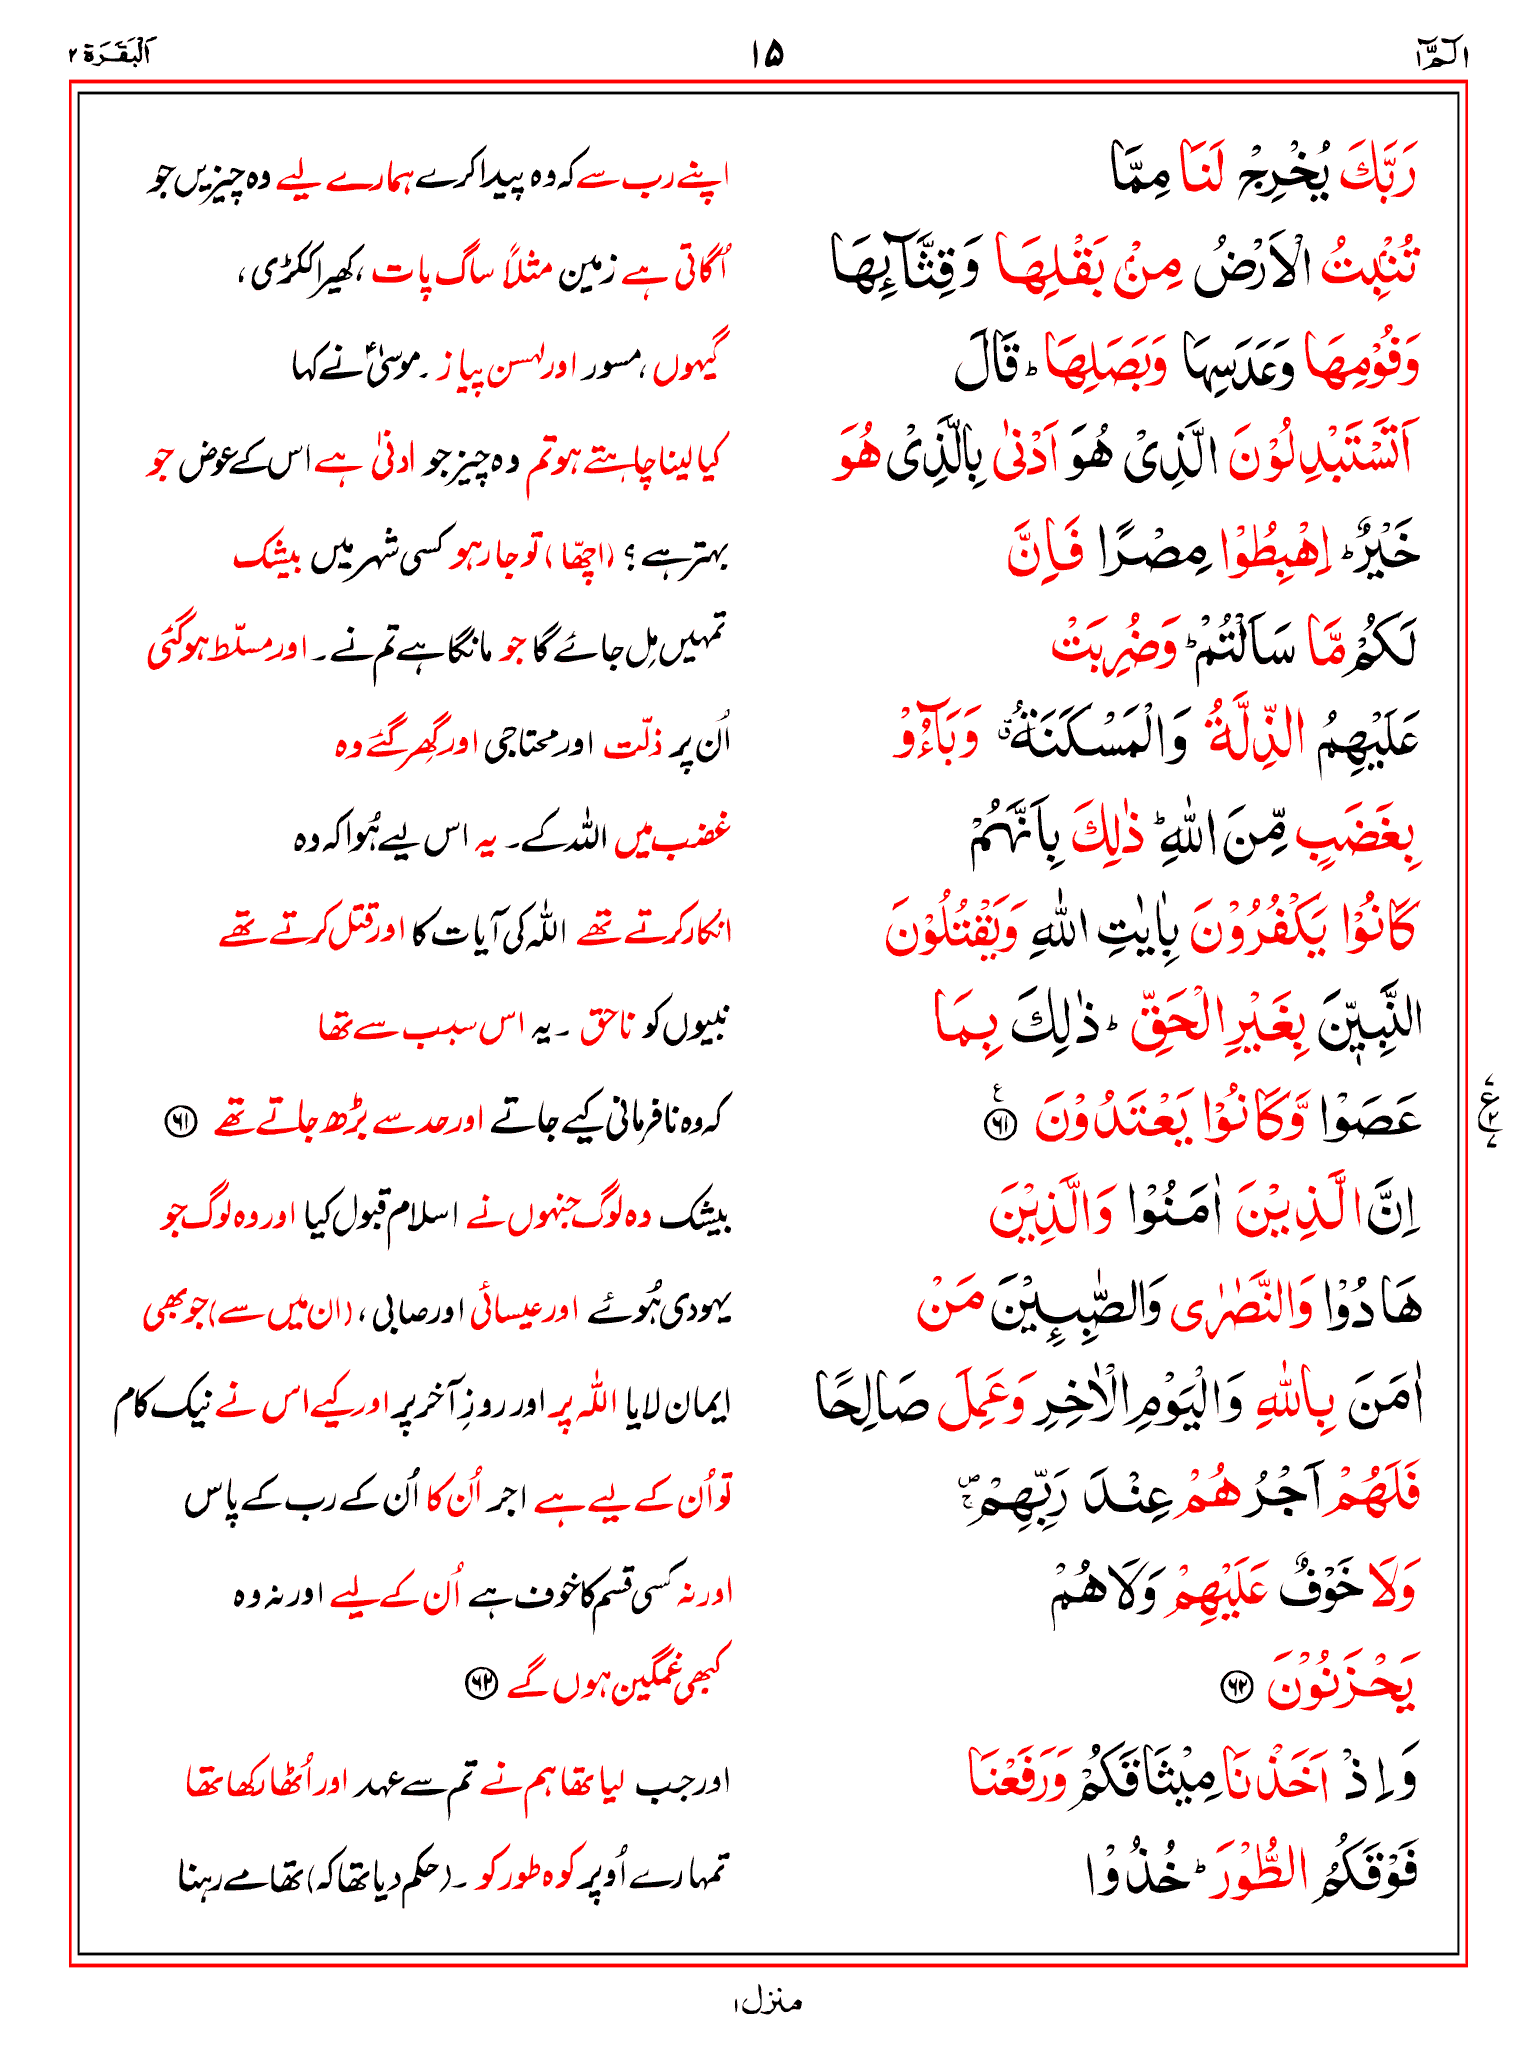 الٓمّٓ ۱
۱۵
اَلْبَقَرَة ۲
رَبَّكَ يُخْرِجْ لَنَا مِمَّا
اپنے رب سے کہ وہ پیدا کرے ہمارے لیے وہ چیزیں جو
تُنْۢبِتُ الْاَرْضُ مِنْۢ بَقْلِهَا وَقِثَّآئِهَا
اُگاتی ہے زمین مثلاً ساگ پات ،کھیرا ککڑی ،
وَفُوْمِهَا وَعَدَسِهَا وَبَصَلِهَا ؕ قَالَ
گیہوں ،مسور اور لہسن پیاز ۔ موسیٰؑ نے کہا
اَتَسْتَبْدِلُوْنَ الَّذِىْ هُوَ اَدْنٰى بِالَّذِىْ هُوَ
کیا لینا چاہتے ہو تم وہ چیز جو ادنیٰ ہے اس کے عوض جو
خَيْرٌ ؕ اِهْبِطُوْا مِصْرًا فَاِنَّ
بہتر ہے ؟ (اچھّا) تو جا رہو کسی شہر میں بیشک
لَكُمْ مَّا سَاَلْتُمْ ؕ وَضُرِبَتْ
تمہیں مِل جائے گا جو مانگا ہے تم نے ۔ اور مسلّط ہوگئی
عَلَيْهِمُ الذِّلَّةُ وَالْمَسْكَنَةُ ۗ وَبَآءُوْ
اُن پر ذلّت اور محتاجی اور گھِر گئے وہ
بِغَضَبٍ مِّنَ اللّٰهِ ؕ ذٰلِكَ بِاَنَّهُمْ
غضب میں اللہ کے ۔ یہ اس لیے ہُوا کہ وہ
كَانُوْا يَكْفُرُوْنَ بِاٰيٰتِ اللّٰهِ وَيَقْتُلُوْنَ
انکار کرتے تھے اللہ کی آیات کا اور قتل کرتے تھے
النَّبِيّٖنَ بِغَيْرِ الْحَقِّ ؕ ذٰلِكَ بِمَا
نبیوں کو ناحق ۔ یہ اس سبب سے تھا
عَصَوْا وَّكَانُوْا يَعْتَدُوْنَ ۶۱ ع
کہ وہ نافرمانی کیے جاتے اور حد سے بڑھ جاتے تھے ۶۱
۷ ع ۲ ۷
اِنَّ الَّذِيْنَ اٰمَنُوْا وَالَّذِيْنَ
بیشک وہ لوگ جنہوں نے اسلام قبول کیا اور وہ لوگ جو
هَادُوْا وَالنَّصٰرٰى وَالصّٰبِـِٕيْنَ مَنْ
یہودی ہُوئے اور عیسائی اور صابی ، (ان میں سے) جو بھی
اٰمَنَ بِاللّٰهِ وَالْيَوْمِ الْاٰخِرِ وَعَمِلَ صَالِحًا
ایمان لایا اللہ پر اور روزِ آخر پر اور کیے اس نے نیک کام
فَلَهُمْ اَجْرُهُمْ عِنْدَ رَبِّهِمْ ۪ۚ
تو اُن کے لیے ہے اجر اُن کا اُن کے رب کے پاس
وَلَا خَوْفٌ عَلَيْهِمْ وَلَا هُمْ
اور نہ کسی قسم کا خوف ہے اُن کے لیے اور نہ وہ
يَحْزَنُوْنَ ۶۲
کبھی غمگین ہوں گے ۶۲
وَاِذْ اَخَذْنَا مِيْثَاقَكُمْ وَرَفَعْنَا
اور جب لیا تھا ہم نے تم سے عہد اور اُٹھا رکھا تھا
فَوْقَكُمُ الطُّوْرَ ؕ خُذُوْا
تمہارے اُوپر کوہ طور کو ۔ (حکم دیا تھا کہ) تھامے رہنا
منزل ۱